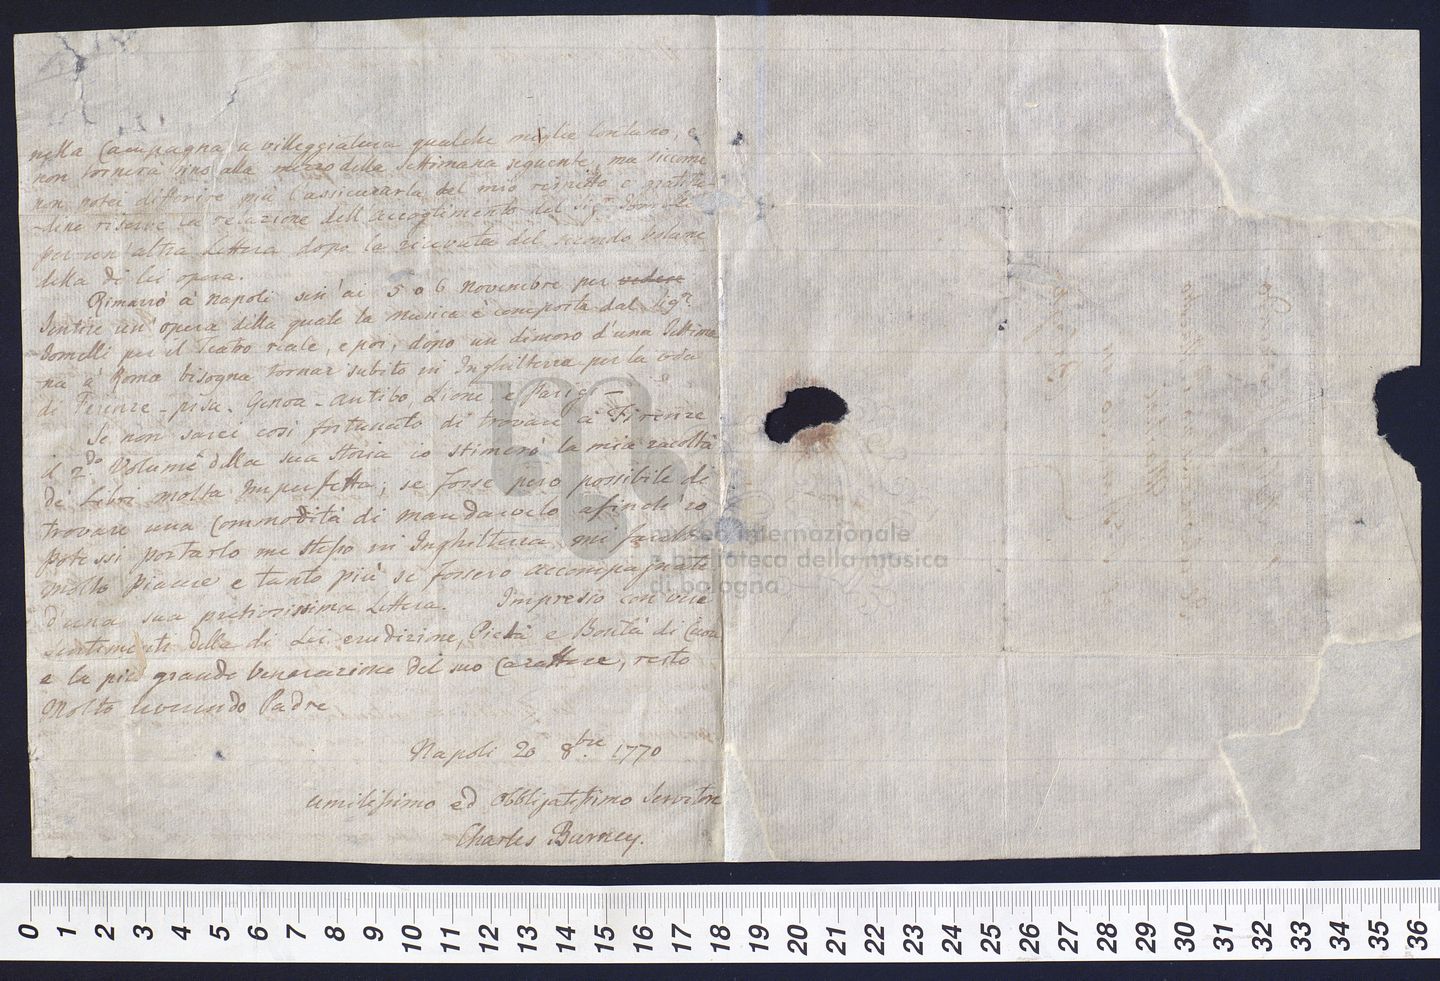 nella Campagna a villeggiatura qualche miglie lontano, e
non tornerà sino alla mezzo della Settimana seguente, ma siccome
non potei differire più l'assicurarla del mio rispetto e gratitu-
-dine riservo la relazione dell'accoglimento del Sigr. Jomelli
per un'altra Lettera dopo la ricevuta del secondo Volume
della di lei opera.
Rimarrò à Napoli sin'ai 5 o 6 Novembre per vedere
sentire un'opera della quale la musica è composta dal Sigr.
Jomelli per il Teatro reale, e poi, dopo un dimoro d'una Settima
na à Roma bisogna tornar subito in Inghilterra per la via
di Firenze - pisa - Genoa - Antibo, Lione, e Parigi -
Se non sarei cosi fortunato di trovare à Firenze
il 2do. Volume della sua storia io stimerò la mia racolta
de' Libri molta Imperfetta; se fosse però possibile di
trovare una Commodità di mandarvelo afinch' io
potessi portarlo me stesso in Inghilterra, mi farebbe
molto piacere e tanto più se fossero accompagnate
d'una sua pretiosissima Lettera. Impresso con vere
sentimenti della di Lei erudizione, Pietà e Bontà di Cuore
e la più grande venerazione del suo Carattere, resto
Molto reverendo Padre
Napoli 20 8bre. 1770
umilissimo ed obbligatissimo Servitore
Charles Burney.
museo internazionale
e biblioteca della musica
di bologna
0 1 2 3 4 5 6 7 8 9 10 11 12 13 14 15 16 17 18 19 20 21 22 23 24 25 26 27 28 29 30 31 32 33 34 35 36